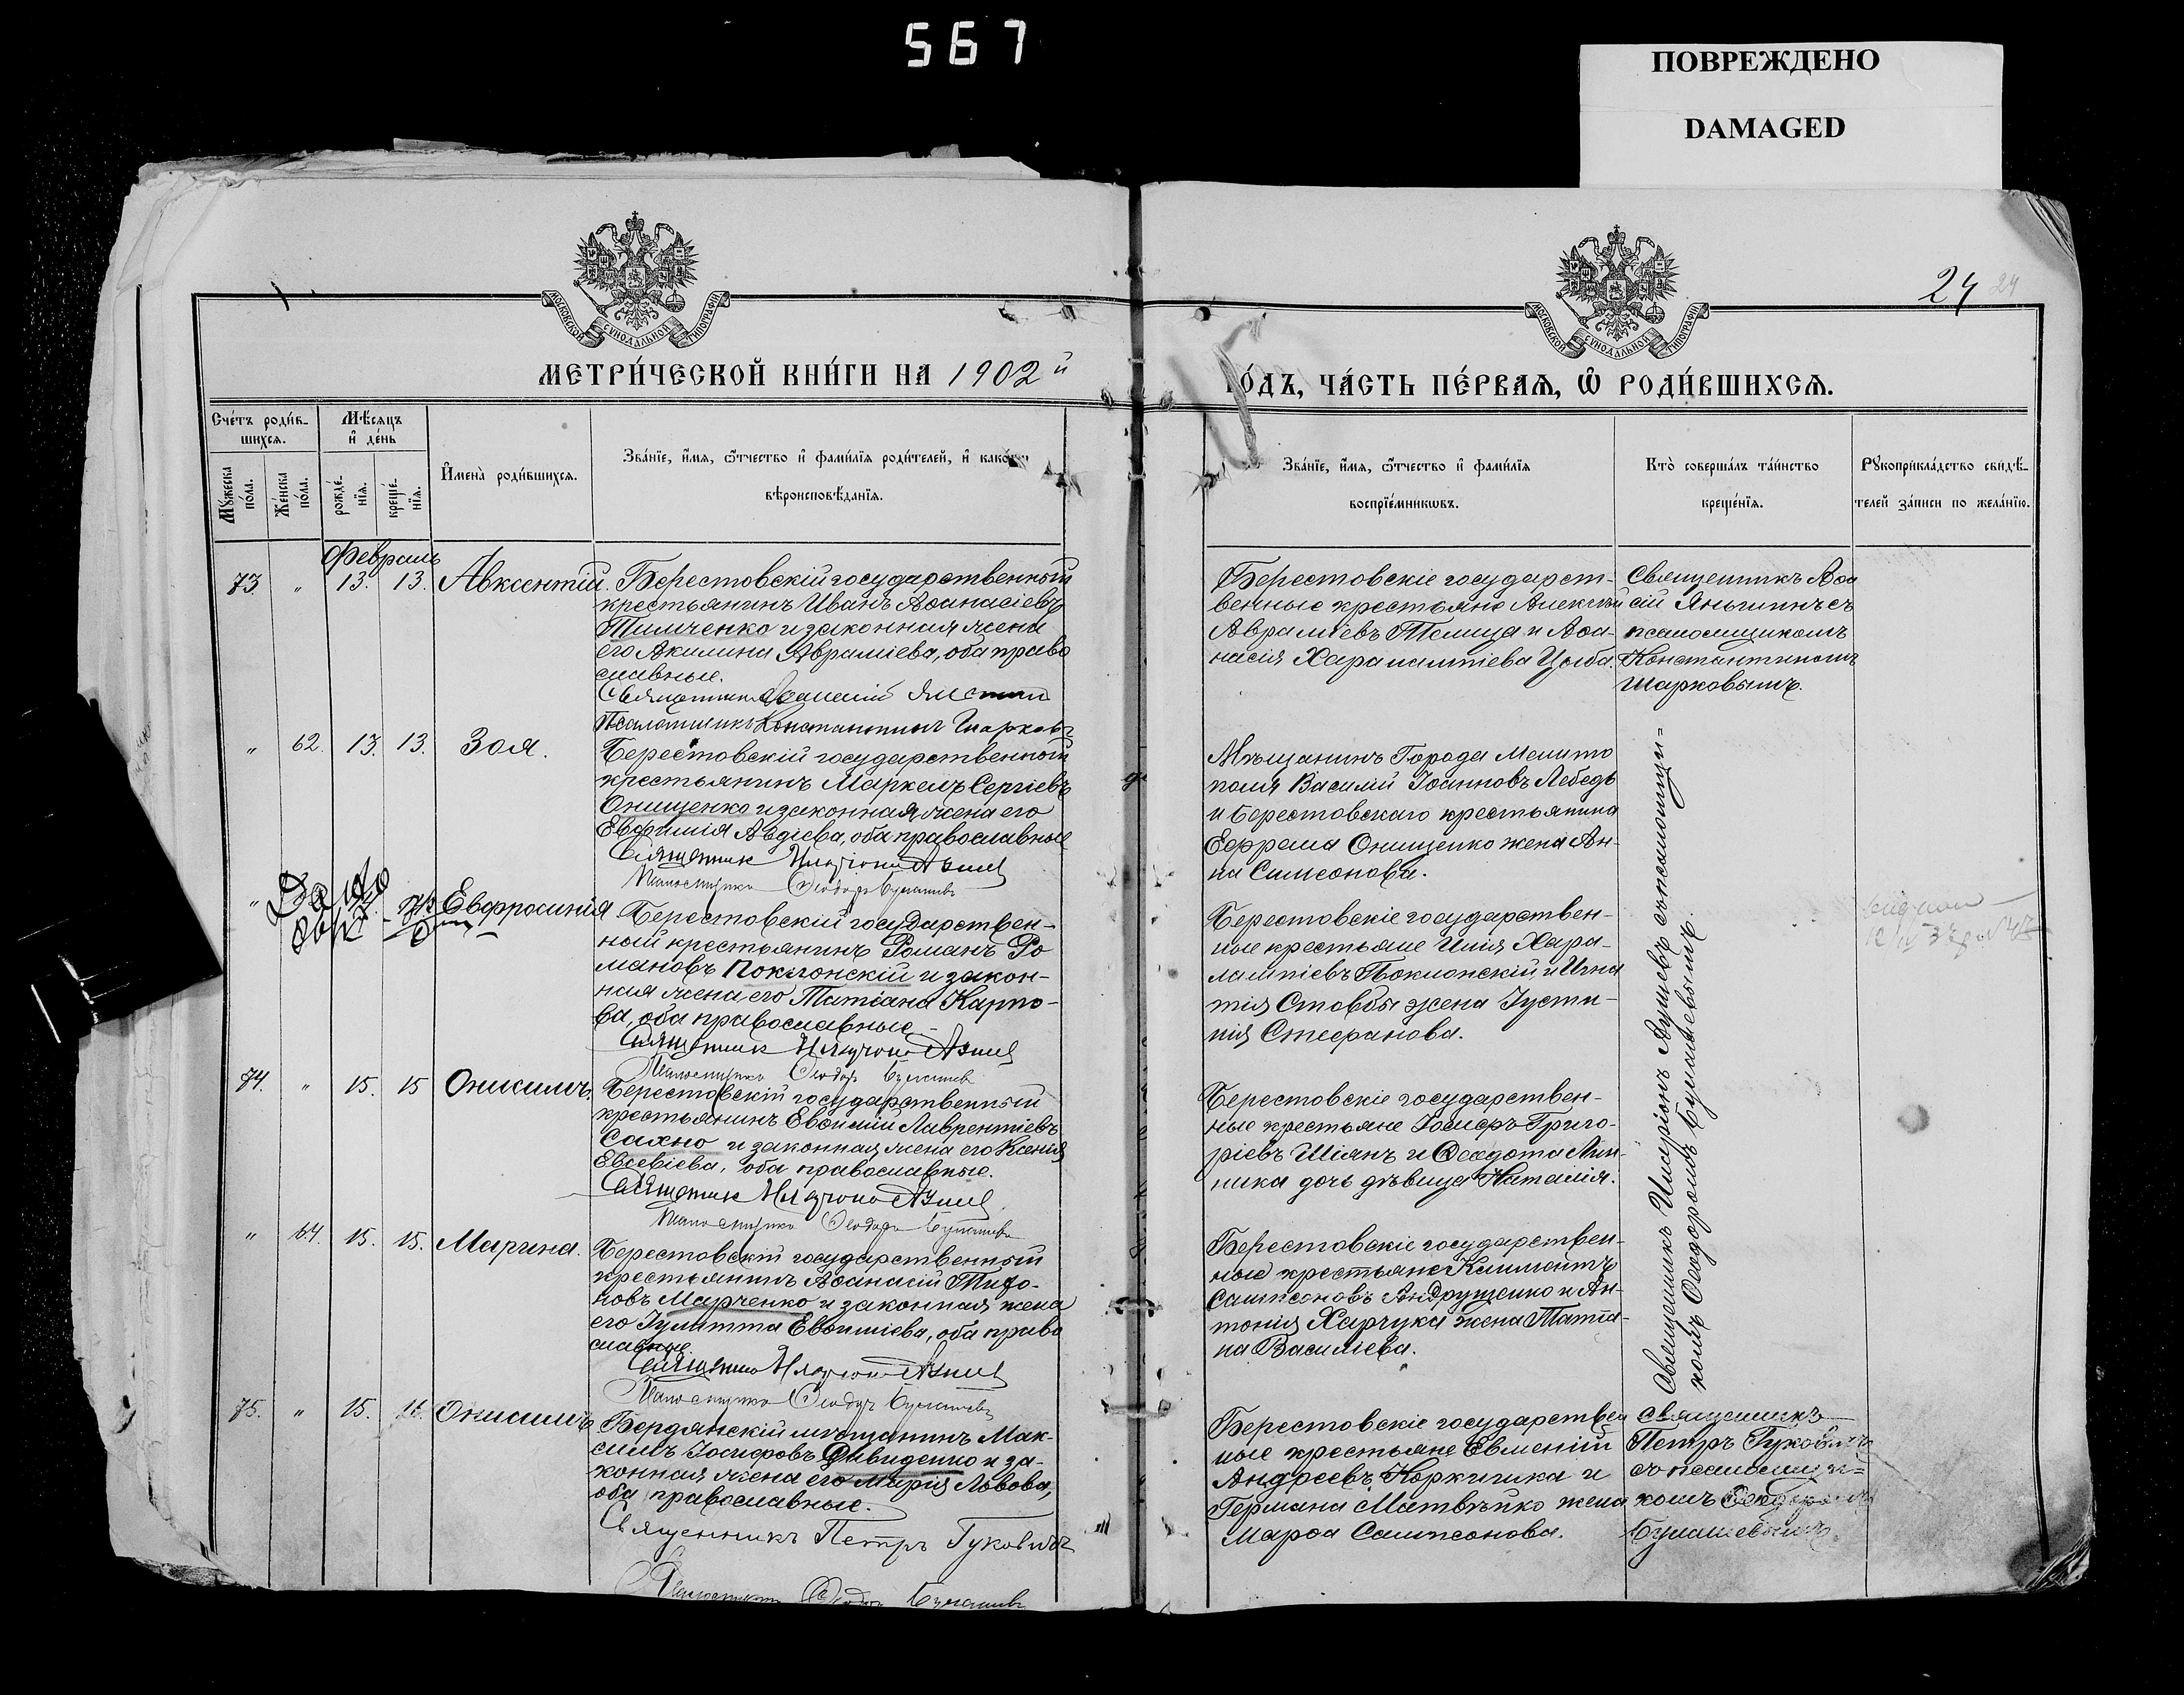 567
ПОВРЕЖДЕНО
DAMAGED
24 24
МОСКОВСКОЙ СѴНОДАЛЬНОЙ ТИПОГРАФІИ
МОСКОВСКОЙ СѴНОДАЛЬНОЙ ТИПОГРАФІИ
МЕТРИ́ЧЕСКОЙ КНИ́ГИ НА 1902й
ГО́ДЪ, ЧА́СТЬ ПЕ́РВАѦ, Ѽ РОДИ́ВШИХСѦ.
Сче́тъ роди́в-
шихсѧ.
Мѣ́сѧцъ
и҆ де́нь
Мꙋ́жеска
по́ла.
Же́нска
по́ла.
рожде́-
нїѧ.
креще́-
нїѧ.
И҆мена̀ роди́вшихсѧ.
Зва́нїе, и҆́мѧ, ѻ҆́тчество и҆ фами́лїѧ роди́телей, и҆ како́гѡ
вѣроисповѣ́данїѧ.
Зва́нїе, и҆́мѧ, ѻ҆́тчество и҆ фами́лїѧ
воспрїе́мникѡвъ.
Кто̀ соверша́лъ та́инство
креще́нїѧ.
Рꙋкоприкла́дство свидѣ́-
телей за́писи по жела́нїю.
Февраль
73. " 13. 13. Авксентій.
Берестовскій государственный
крестьянинъ Иванъ Аѳанасіевъ
Тимченко и законная жена
его Акилина Авраміева, оба право
славные.
Псаломщикъ Константинъ Шарковъ
Берестовскіе государст-
венные крестьяне Алексѣй
Авраміевъ Телица и Аѳа-
насія Харалампіева Цыба.
Священникъ Аѳа
сій Яньшинъ съ
псаломщикомъ
Константиномъ
Шарковымъ.
" 62. 13. 13. Зоя.
Берестовскій государственный
крестьянинъ Маркелъ Сергіевъ
Онищенко и законная жена его
Евфимія Авдіева, оба православные
Священник
Псаломщикъ Ѳеодоръ
Мѣщанинъ Города Мелито
поля Василій Іоанновъ Лебедь
и Берестовскаго крестьянина
Ефрема Онищенко жена Ан-
на Симеонова.
" Евфросинія
Берестовскій государствен-
ный крестьянинъ Романъ Ро
мановъ Поклонскій и закон-
ная жена его Татіана Карпо-
ва, оба православные.
Священник
Псаломщикъ Ѳеодоръ
Берестовскіе государствен-
ные крестьяне Илія Хара-
лампіевъ Поклонскій и Игна
тія Стовбы жена Іусти-
нія Стефанова.
74. " 15. 15 Онисимъ.
Берестовскій государственный
крестьянинъ Евѳимій Лаврентіевъ
Сахно и законная жена его Ксенія
Евсевіева, оба православные.
Священник
Псаломщикъ Ѳеодоръ
Берестовскіе государствен-
ные крестьяне Іосифъ Григо-
ріевъ Шіянъ и Ѳеодота Мин-
ника дочь дѣвица Наталія.
" 64. 15. 15. Марина.
Берестовскій государственный
крестьянинъ Аѳанасій Тихо-
новъ Марченко и законная жена
его Іулитта Евѳиміева, оба право
славные.
Священник
Псаломщикъ Ѳеодоръ
Берестовскіе государствен-
ные крестьяне Климентъ
Сампсоновъ Андрущенко и Ан-
тонія Харчука жена Татіа-
на Василіева.
75. " 15. 16. Онисимъ
Бердянскій мѣщанинъ Мак-
симъ Іосифовъ Дивиденко и за-
конная жена его Марія Львова,
оба православные.
Священникъ Петръ Гуковичъ
Псаломщикъ Ѳеодоръ
Берестовскіе государствен
ные крестьяне Евменій
Андреевъ Коркишка и
Германа Матвѣйко жена
Марѳа Сампсонова.
Священникъ
Петръ Гуковичъ
съ псаломщи-
комъ Ѳеодоромъ